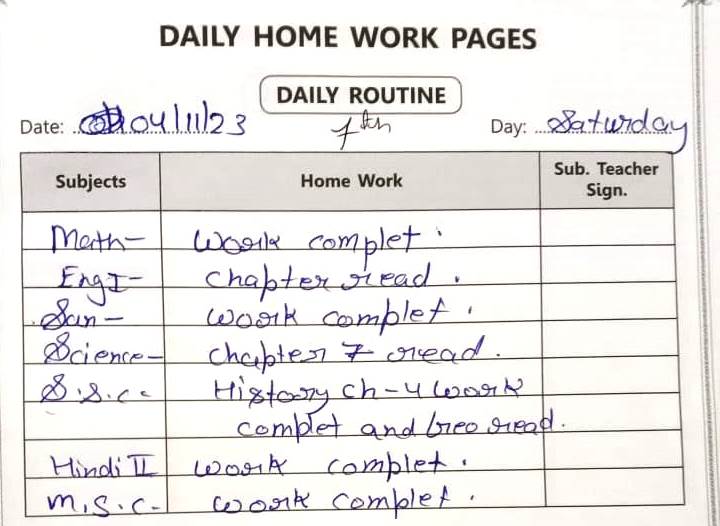 DAILY HOME WORK PAGES
DAILY ROUTINE
Date: 04/11/23 7th Day: Saturday
Subjects Home Work Sub. Teacher Sign.
Math- Work complet.
Eng I- Chapter read.
San- Work complet.
Science- Chapter 7 read.
S.S.C- History Ch-4 work
complet and read.
Hindi II Work complet.
M.S.C- Work complet.